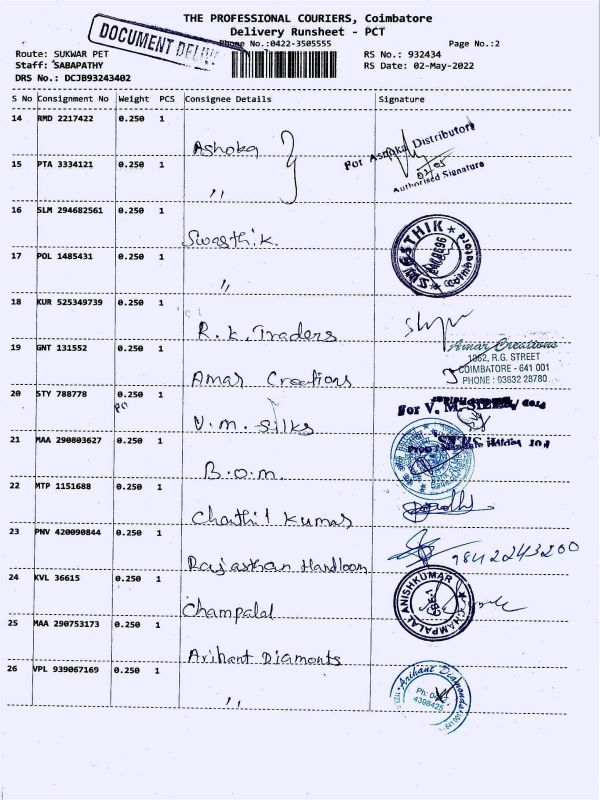 THE PROFESSIONAL COURIERS, Coimbatore
Delivery Runsheet - PCT
Phone No.:0422-3505555 Page No.:2
DOCUMENT
Route: SUKWAR PET RS No.: 932434
Staff: SABAPATHY RS Date: 02-May-2022
DRS No.: DCJB93243402
S No Consignment No Weight PCS Consignee Details Signature
14 RMD 2217422 0.250 1
Ashoka
For Ashoka Distributors
15 PTA 3334121 0.250 1
02/05
Authorised Signature
,,
16 SLM 294682561 0.250 1
Swasthik.
SWASTHIK
Coimbatore
17 POL 1485431 0.250 1
,,
18 KUR 525349739 0.250 1
R. K. Traders
19 GNT 131552 0.250 1
Amar Creations
1062, R.G. STREET
COIMBATORE - 641 001
PHONE : 93632 28780
Amar Creations
20 STY 788778 0.250 1
For V. M. SILKS
V. M. Silks
21 MAA 290803627 0.250 1
B.O.M.
22 MTP 1151688 0.250 1
Chanthil Kumar
23 PNV 420090844 0.250 1
9842243200
Rajasthan Handloom
24 KVL 36615 0.250 1
CHAMPALAL ANISHKUMAR
Champalal
25 MAA 290753173 0.250 1
Arihant Diamonts
26 VPL 939067169 0.250 1
Arihant Diamonds
Ph: 0422
4398425
,,